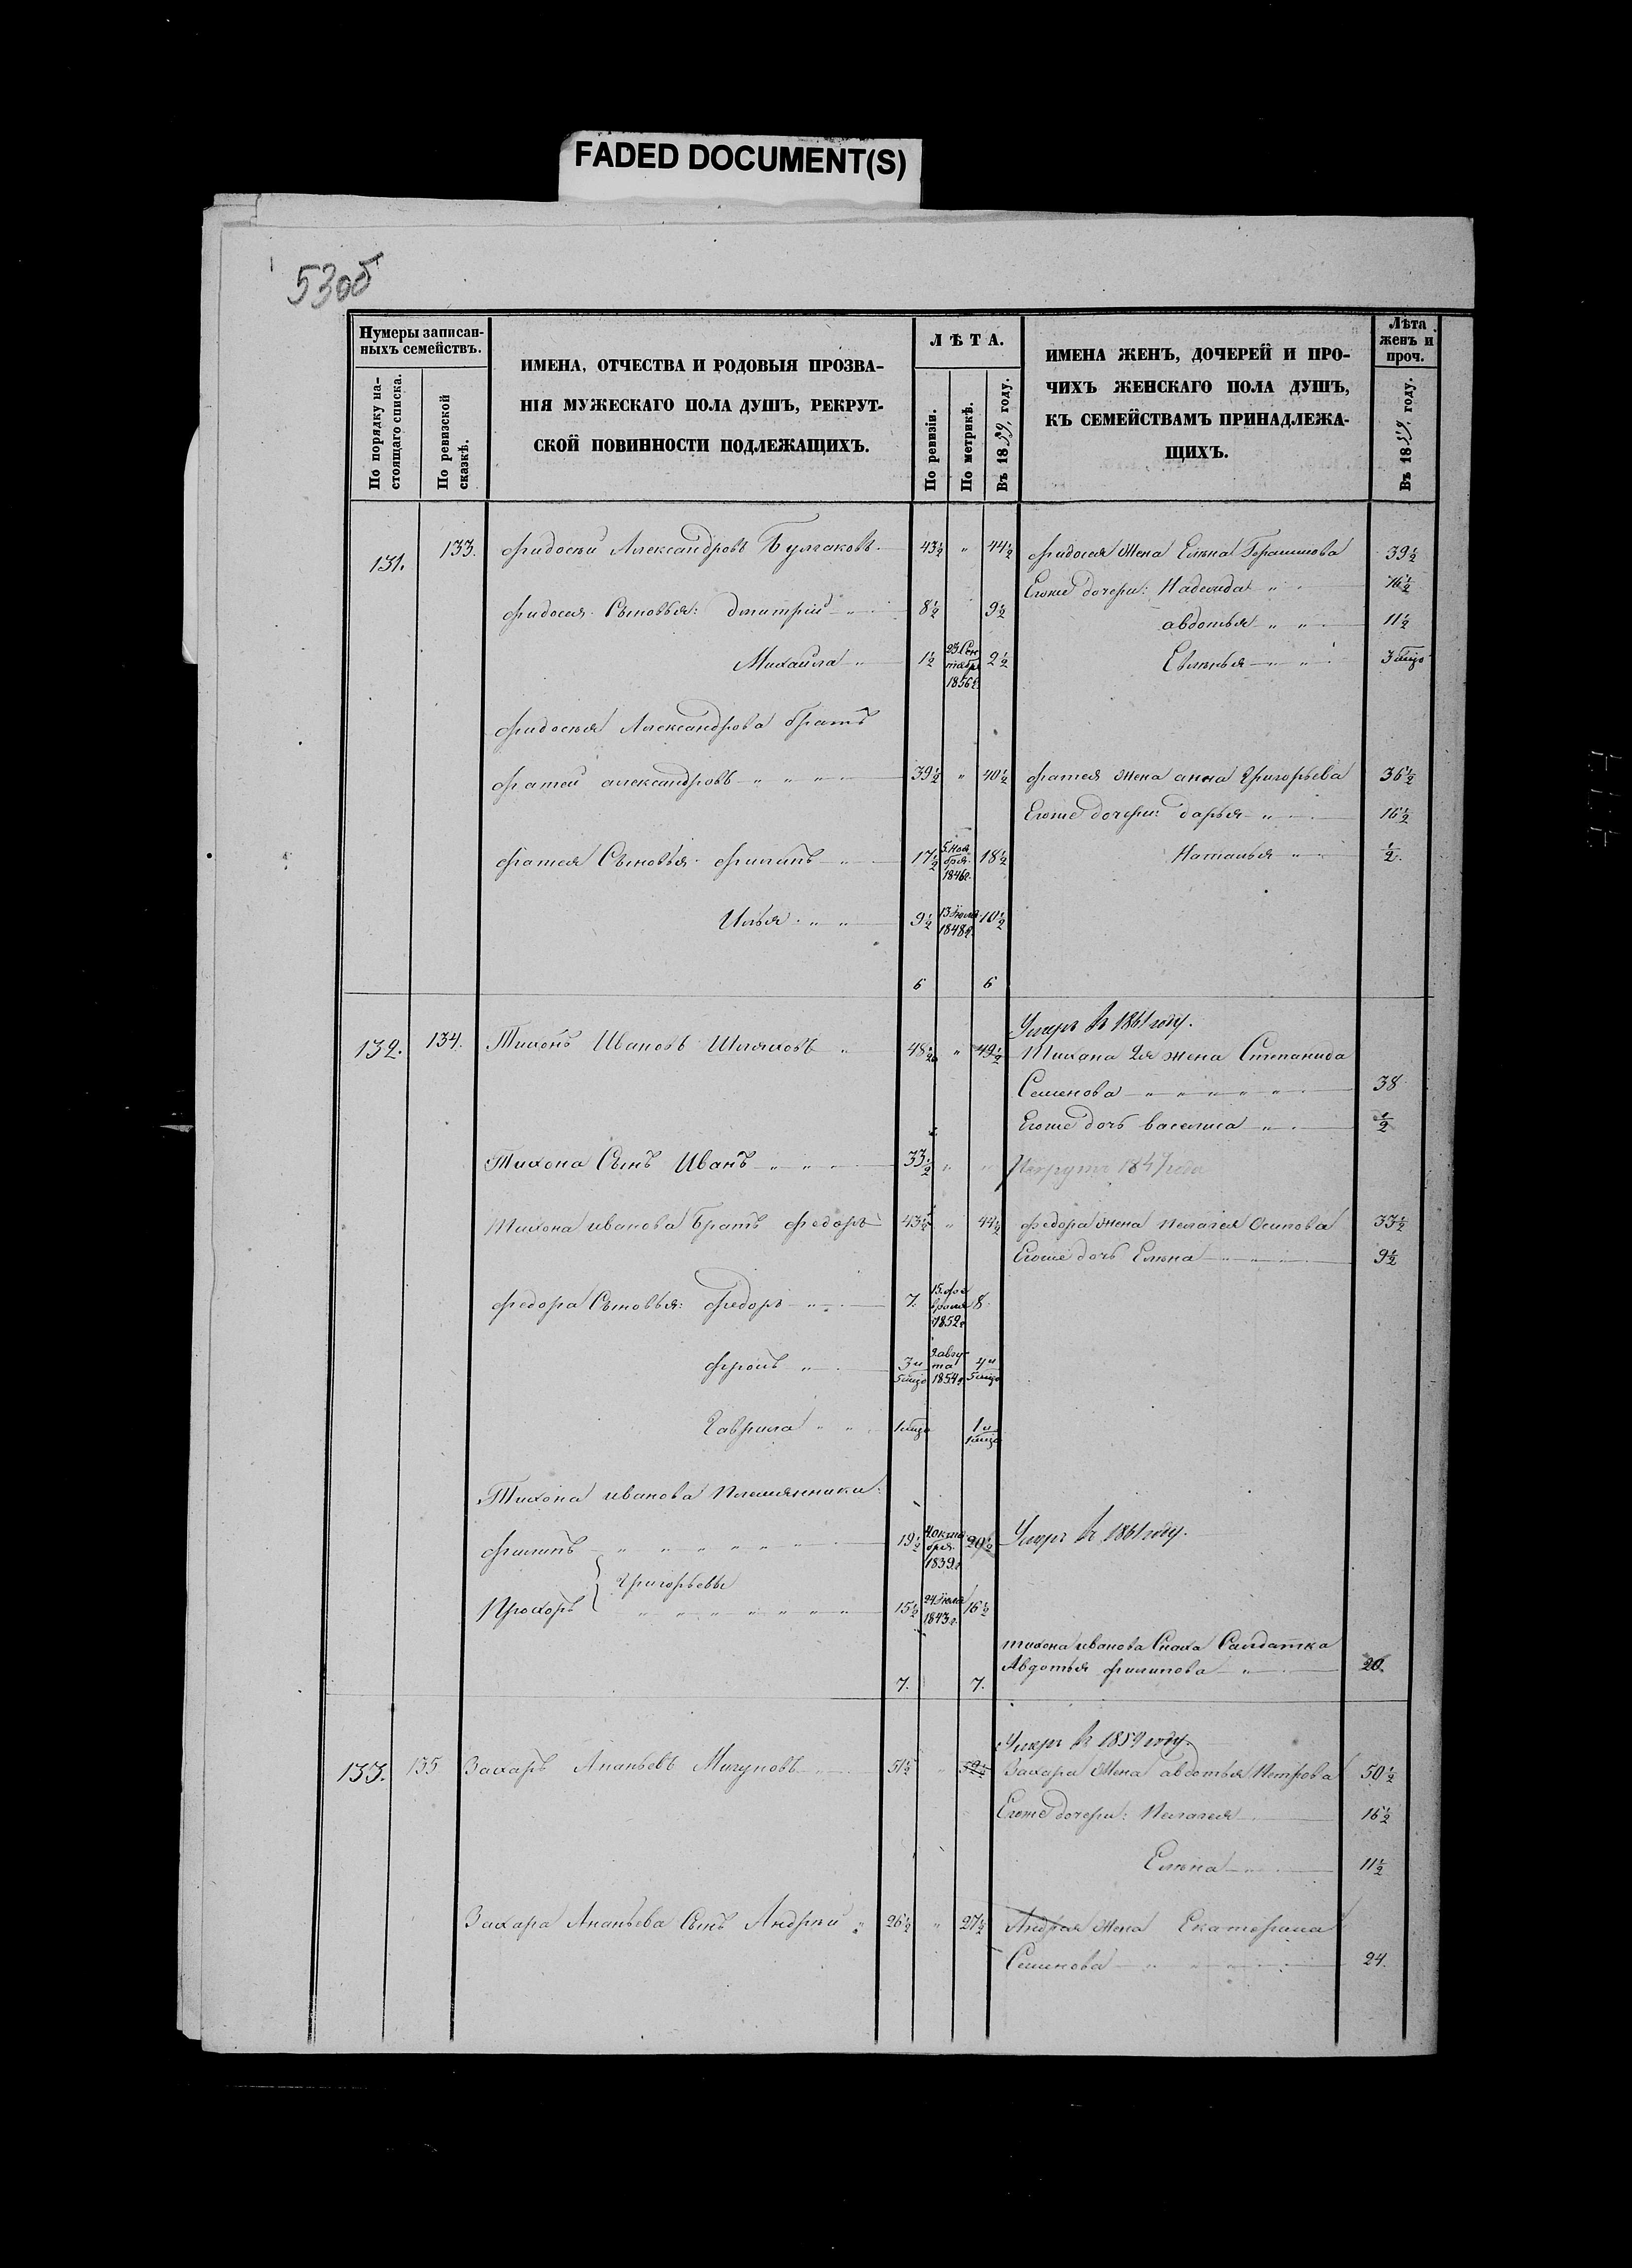 FADED DOCUMENT(S)
53об
Нумеры записан-
ныхъ семействъ.
По порядку на-
стоящаго списка.
По ревизской
сказкѣ.
ИМЕНА, ОТЧЕСТВА И РОДОВЫЯ ПРОЗВА-
НІЯ МУЖЕСКАГО ПОЛА ДУШЪ, РЕКРУТ-
СКОЙ ПОВИННОСТИ ПОДЛЕЖАЩИХЪ.
ЛѢТА.
По ревизіи.
По метрикѣ.
Въ 1859, году.
ИМЕНА ЖЕНЪ, ДОЧЕРЕЙ И ПРО-
ЧИХЪ ЖЕНСКАГО ПОЛА ДУШЪ,
КЪ СЕМЕЙСТВАМЪ ПРИНАДЛЕЖА-
ЩИХЪ.
Лѣта
женъ и
проч.
Въ 1859, году.
131. 133. Фидосѣй Александровъ Булгаковъ. 43½ " 44½ Фидосея Жена Елѣна 39½
Егоже дочери: Надежда " " 16½
Фидосея Сыновья: дмитрій " 8½ 9½
авдотья " " 11½
Михайла " 1½ 23 Сен
тября
1856 г. 2½
3 мѣцо
Фидосѣя Александрова братъ
Фатей александровъ " " " " 39½ " 40½ Фатея жена анна Григорьева 36½
Егоже дочери: дарья " 16½
Фатея Сыновья филипъ " 17½ 5. Ноя
бря
1846г. 18½ Наталья " " ½.
Илья " " 9½ 13 Июля
1848г. 10½
6 6
Умеръ въ 1861 году.
132. 134. Тихонъ Ивановъ Шляховъ " 48½ " 49½ Тихана 2я жена Степанида
Семенова " " " " " 38
Егоже дочь василиса " ½
Тихона Сынъ Иванъ " " " 33½ " " Некрутъ 1847 года
Тихона иванова Братъ федоръ 43½ " 44½ федора жена пелагея Осипова 33½
Егоже дочь Елѣна 9½
федора Сыновья: федоръ " 7. 15. фев
враля
1852г 8.
фролъ " 3 и
5 мѣцо 2 авгу
та
1854г 4 и
5 мѣцо
Гаврила " " 1 мѣцо 1 и
1 мѣцо
Тихона иванова Племянники:
филипъ " " " " " " 19½ 4 октя
бря
1839г 20½ Умеръ въ 1861 году.
Григорьевы
Прохоръ " " " " " " " 15½ 24 Июля
1843г. 16½
тихона иванова Сноха Салдатка
Авдотья филипова " 20.
7. 7.
Умеръ въ 1859 году.
133. 135 Захаръ Ананьевъ Мигуновъ 51½ " 52½ Захара Жена авдотья Петрова 50½
Егоже дочери: Пелагея 16½
Елѣна 11½
Захара Ананьева Сынъ Андрѣй " 26½ " 27½ Андрея жена Екатерина
Семенова " " " " 24.